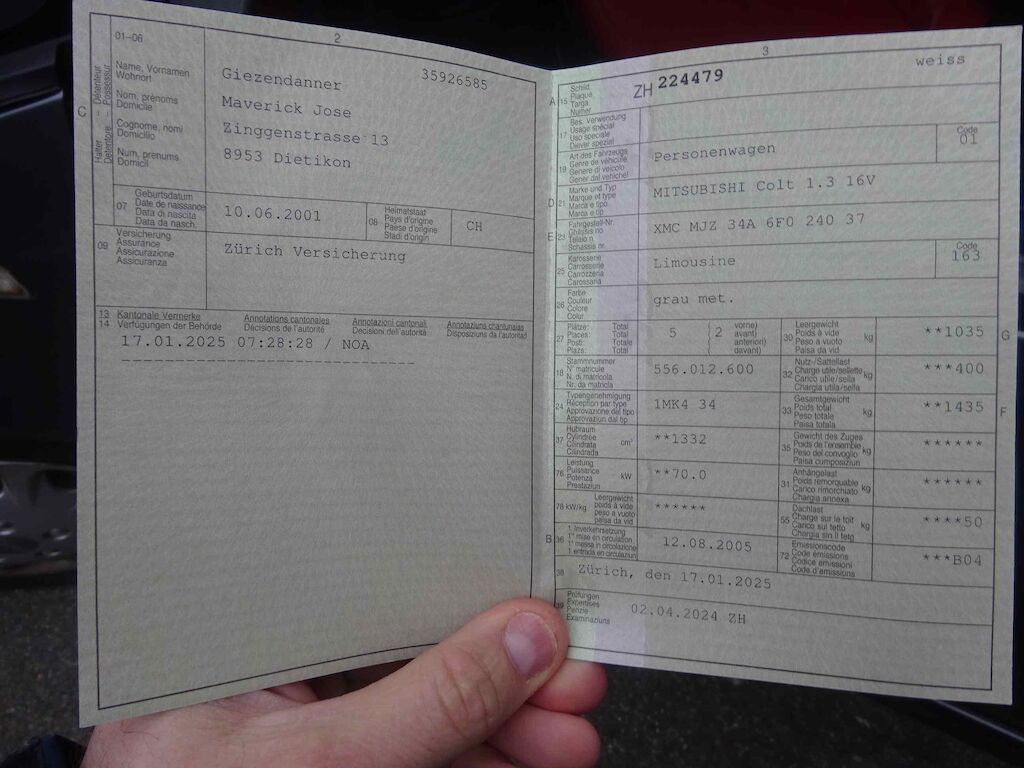 2
C
Halter Détenteur
Detentore Possessur
01-06
Name, Vornamen
Wohnort
Nom, prénoms
Domicile
Cognome, nomi
Domicilio
Num, prenums
Domicil
35926585
Giezendanner
Maverick Jose
Zinggenstrasse 13
8953 Dietikon
07
Geburtsdatum
Date de naissance
Data di nascita
Data da nasch.
10.06.2001
08
Heimatstaat
Pays d'origine
Paese d'origine
Stadi d'origin
CH
09
Versicherung
Assurance
Assicurazione
Assicuranza
Zürich Versicherung
13 Kantonale Vermerke Annotations cantonales Annotazioni cantonali Annotaziuns chantunalas
14 Verfügungen der Behörde Décisions de l'autorité Decisioni dell'autorità Disposiziuns da l'autoritad
17.01.2025 07:28:28 / NOA
3
weiss
A 15
Schild
Plaque
Targa
Numer
ZH 224479
17
Bes. Verwendung
Usage spécial
Uso speciale
Diever spezial
19
Art des Fahrzeugs
Genre de véhicule
Genere di veicolo
Gener dal vehichel
Personenwagen
Code
01
D 21
Marke und Typ
Marque et type
Marca e tipo
Marca e tip
MITSUBISHI Colt 1.3 16V
E 23
Fahrgestell-Nr.
Châssis no
Telaio n.
Schassis nr.
XMC MJZ 34A 6F0 240 37
25
Karosserie
Carrosserie
Carrozzeria
Carossaria
Limousine
Code
163
26
Farbe
Couleur
Colore
Colur
grau met.
27
Plätze: Total
Places: Total
Posti: Totale
Plazs: Total
5 ( 2 vorne)
( avant)
( anteriori)
( davant)
30
Leergewicht
Poids à vide
Peso a vuoto
Paisa da vid
kg
**1035
G
18
Stammnummer
N° matricule
N. di matricola
Nr. da matricla
556.012.600
32
Nutz-/Sattellast
Charge utile/sellette
Carico utile/sella
Chargia utila/sella
kg
***400
24
Typengenehmigung
Réception par type
Approvazione del tipo
Approvaziun dal tip
1MK4 34
33
Gesamtgewicht
Poids total
Peso totale
Paisa totala
kg
**1435
F
37
Hubraum
Cylindrée
Cilindrata
Cilindrada
cm³
**1332
35
Gewicht des Zuges
Poids de l'ensemble
Peso del convoglio
Paisa cumposiziun
kg
******
76
Leistung
Puissance
Potenza
Prestaziun
kW
**70.0
31
Anhängelast
Poids remorquable
Carico rimorchiato
Chargia annexa
kg
******
78 kW/kg
Leergewicht
poids à vide
peso a vuoto
paisa da vid
******
55
Dachlast
Charge sur le toit
Carico sul tetto
Chargia sin il tetg
kg
****50
B 36
1. Inverkehrsetzung
1re mise en circulation
1a messa in circolazione
1. entrada en circulaziun
12.08.2005
72
Emissionscode
Code émissions
Codice emissioni
Code d'emissiuns
***B04
38
Zürich, den 17.01.2025
39
Prüfungen
Expertises
Perizie
Examinaziuns
02.04.2024 ZH